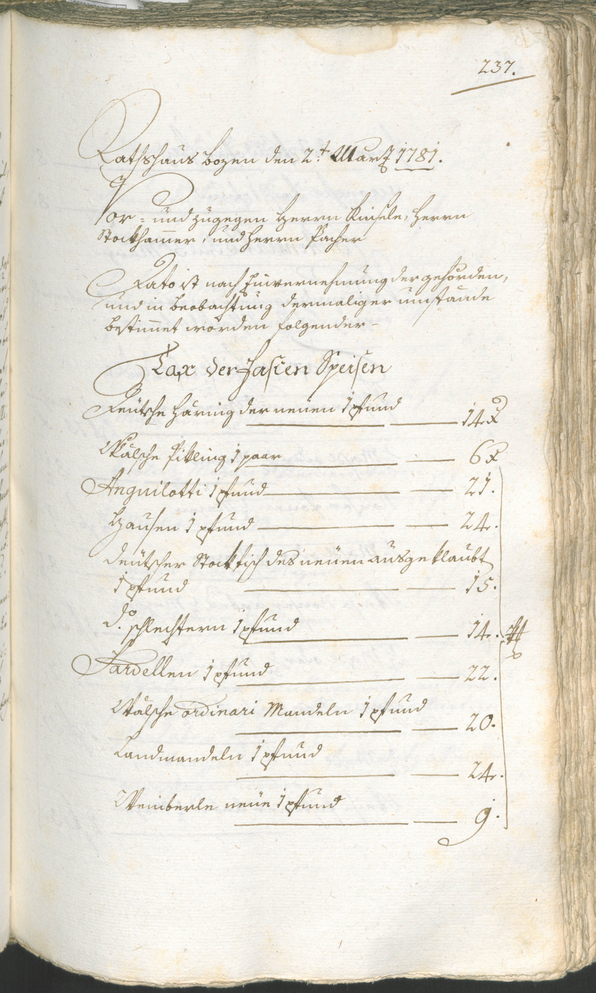 237.
Rathshaus Bozen den 2t März 1781.
Vor- und zugegen Herrn Kinsele, Herrn
Stockhammer, und Herrn Pacher
Dato ist nach Einvernehmung der gehörden,
und in Beobachtung dermaliger umstände
bestimet worden folgender
Tax der Fasten Speisen
Deutsche Häring der neuen 1 pfund 14 x
Wälsche Pikling 1 paar 6 x
Anguilotti 1 pfund 21.
Hausen 1 pfund 24.
Deutscher Stockfisch des neuen ausgeklaubt
1 pfund 15.
do. schlechtern 1 pfund 14.
Sardellen 1 pfund 22.
Wälsche ordinari Mandeln 1 pfund
20.
Landmandeln 1 pfund
24.
Weinberle neue 1 pfund
9.